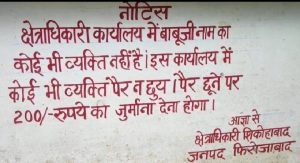 नोटिस
क्षेत्राधिकारी कार्यालय में बाबूजी नाम का
कोई भी व्यक्ति नहीं है। इस कार्यालय में
कोई भी व्यक्ति पैर न छुय। पैर छूने पर
200/-रुपये का जुर्माना देना होगा।
आज्ञा से
क्षेत्राधिकारी शिकोहाबाद
जनपद फिरोजाबाद